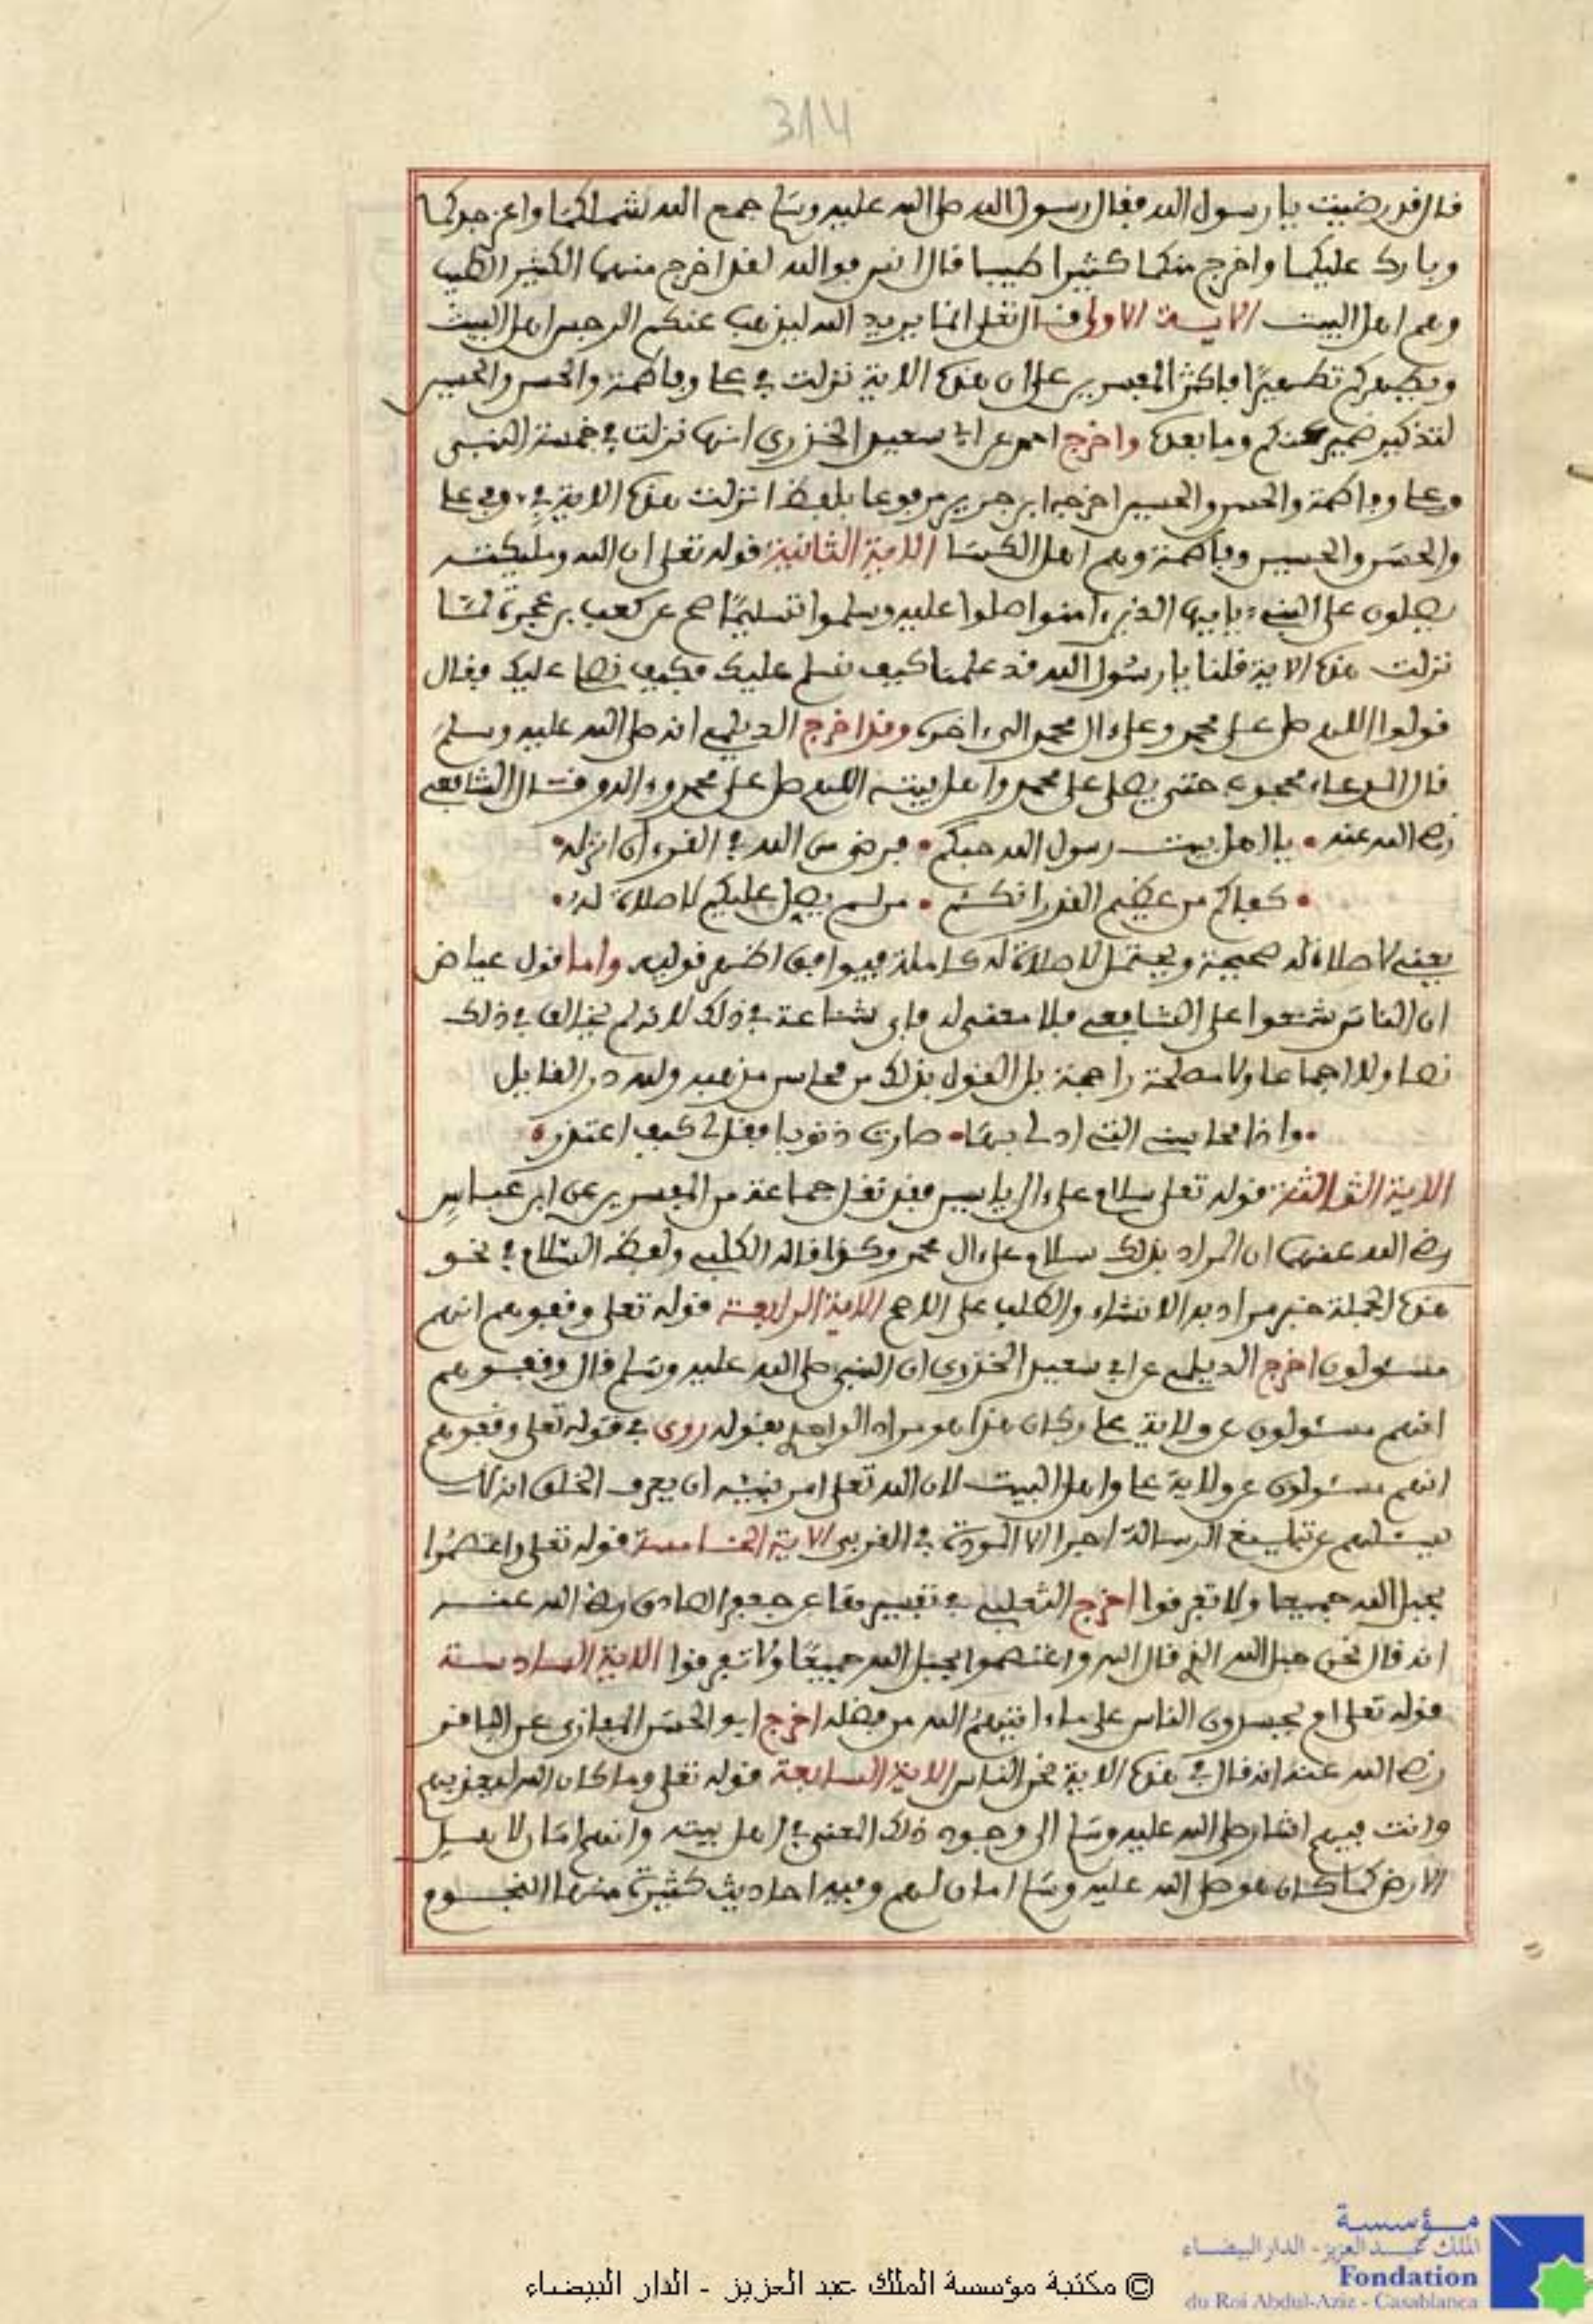 314
قال قد رضيت يا رسول الله فقال رسول الله صلى الله عليه وسلم جمع الله شملكما واعز جدكما
وبارك عليكما واخرج منكما كثيرا طيبا قال انس فوالله لقد اخرج منهما الكثير الطيب
وهم اهل البيت الاية الاولى قال تعلى انما يريد الله ليذهب عنكم الرجس اهل البيت
ويطهركم تطهيرا فاكثر المفسرين على ان هذه الاية نزلت في علي وفاطمة والحسن والحسين
لتذكير ضمير عنكم وما بعده واخرج احمد عن ابي سعيد الخدري انها نزلت في خمسة النبي
وعلي وفاطمة والحسن والحسين اخرجه ابن جرير مرفوعا بلفظ انزلت هذه الاية في وفي علي
والحسن والحسين وفاطمة وهم اهل الكسا الاية الثانية قوله تعلى ان الله ومليكته
يصلون على النبي يايها الذين امنوا صلوا عليه وسلموا تسليما صح عن كعب بن عجرة لما
نزلت هذه الاية قلنا يا رسول الله قد علمنا كيف نسلم عليك فكيف نصلي عليك فقال
قولوا اللهم صل على محمد وعلى ال محمد الى اخره وقد اخرج الديلمي انه صلى الله عليه وسلم
قال الدعاء محجوب حتى يصلى على محمد واهل بيته اللهم صل على محمد وءاله وقال الشافعي
رضي الله عنه • يا اهل بيت رسول الله حبكم • فرض من الله في القرءان انزله •
• كفاكم من عظيم القدر انكم • من لم يصل عليكم لا صلاة له •
يعني لا صلاة له صحيحة ويحتمل لا صلاة له كاملة فيوافق اظهر قوليه واما قول عياض
ان الناس شنعوا على الشافعي فلا معنى له فاي شناعة في ذلك لانه لم يخالف في ذلك
نصا ولا اجماعا ولا مصلحة راجحة بل القول بذلك من محاسن مذهبه ولله در القايل
• واذا محاسني التي ادلي بها • صارت ذنوبا فقل لي كيف اعتذر •
الاية الثالثة قوله تعلى سلام على ال ياسين فقد نقل جماعة من المفسرين عن ابن عباس
رضي الله عنهما ان المراد بذلك سلام على ال محمد وكذا قاله الكلبي ولفظ السلام في نحو
هذه الجملة خبر مراد به الانشاء والطلب على الاصح الاية الرابعة قوله تعلى وقفوهم انهم
مسئولون اخرج الديلمي عن ابي سعيد الخدري ان النبي صلى الله عليه وسلم قال وقفوهم
انهم مسئولون عن ولاية علي وكان هذا هو مراد الواحدي بقوله روى في قوله تعلى وقفوهم
انهم مسئولون عن ولاية علي واهل البيت لان الله تعلى امر نبيه ان يعرف الخلق انه لا
يسئلهم عن تبليغ الرسالة اجرا الا المودة في القربى الاية الخامسة قوله تعلى واعتصموا
بحبل الله جميعا ولا تفرقوا اخرج الثعلبي في تفسيرها عن جعفر الصادق رضي الله عنه
انه قال نحن حبل الله الذي قال الله واعتصموا بحبل الله جميعا ولا تفرقوا الاية السادسة
قوله تعلى ام يحسدون الناس على ما ءاتيهم الله من فضله اخرج ابو الحسن المغازي عن الباقر
رضي الله عنه انه قال في هذه الاية نحن الناس الاية السابعة قوله تعلى وما كان الله ليعذبهم
وانت فيهم اشار صلى الله عليه وسلم الى وجود ذلك المعنى في اهل بيته وانهم امان لاهل
الارض كما كان هو صلى الله عليه وسلم امان لهم وفيه احاديث كثيرة منها النجوم
مؤسسة
الملك عبد العزيز - الدار البيضاء
Fondation
du Roi Abdul-Aziz - Casablanca
© مكتبة مؤسسة الملك عبد العزيز - الدار البيضاء